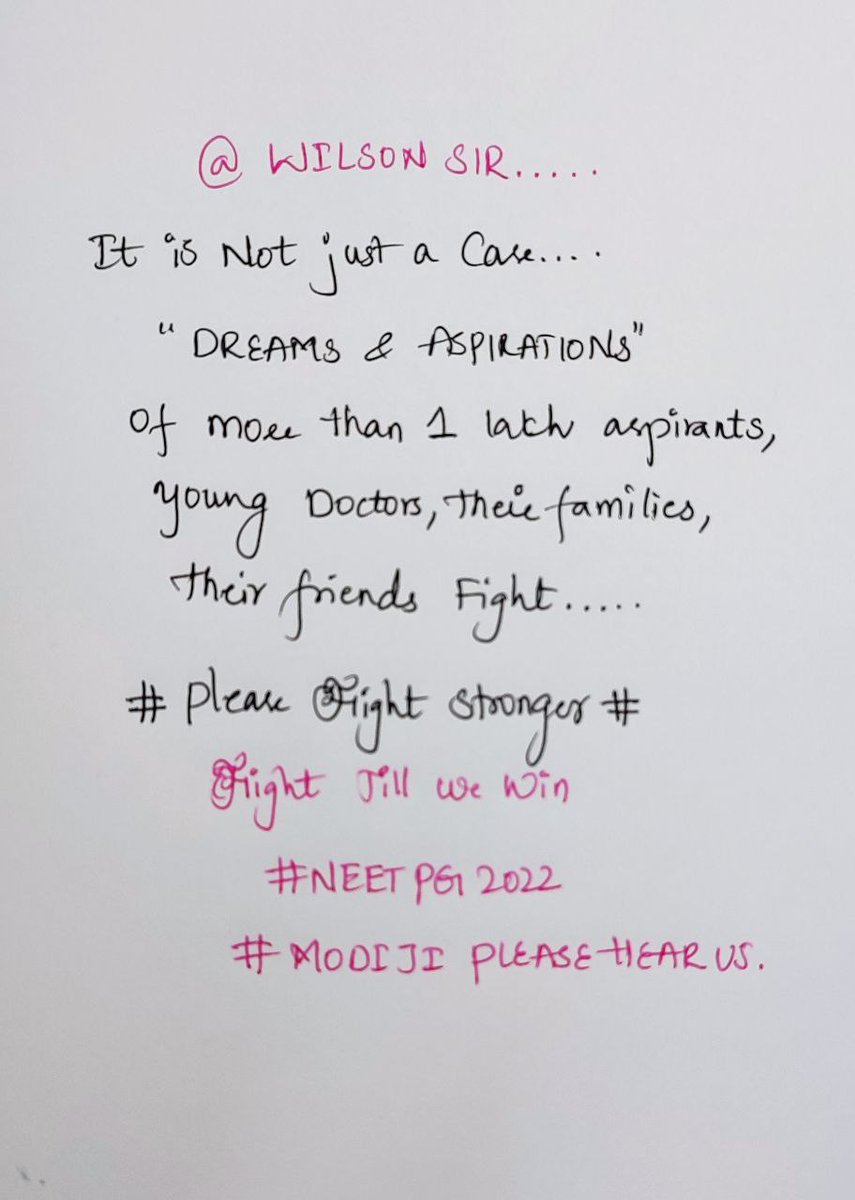 @ WILSON SIR.....
It is Not just a Case....
"DREAMS & ASPIRATIONS"
Of more than 1 lakh aspirants,
Young Doctors, their families,
their friends Fight.....
# Please Fight Stronger #
Fight Till we Win
#NEET PG 2022
# MODI JI PLEASE HEAR US.